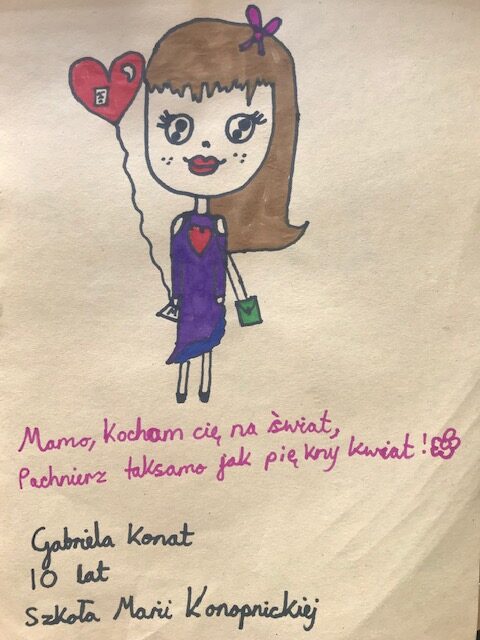 Mamo, Kocham cię na świat,
Pachnierz taksamo jak pię kny kwiat!
Gabriela Konat
10 lat
Szkoła Marii Konopnickiej